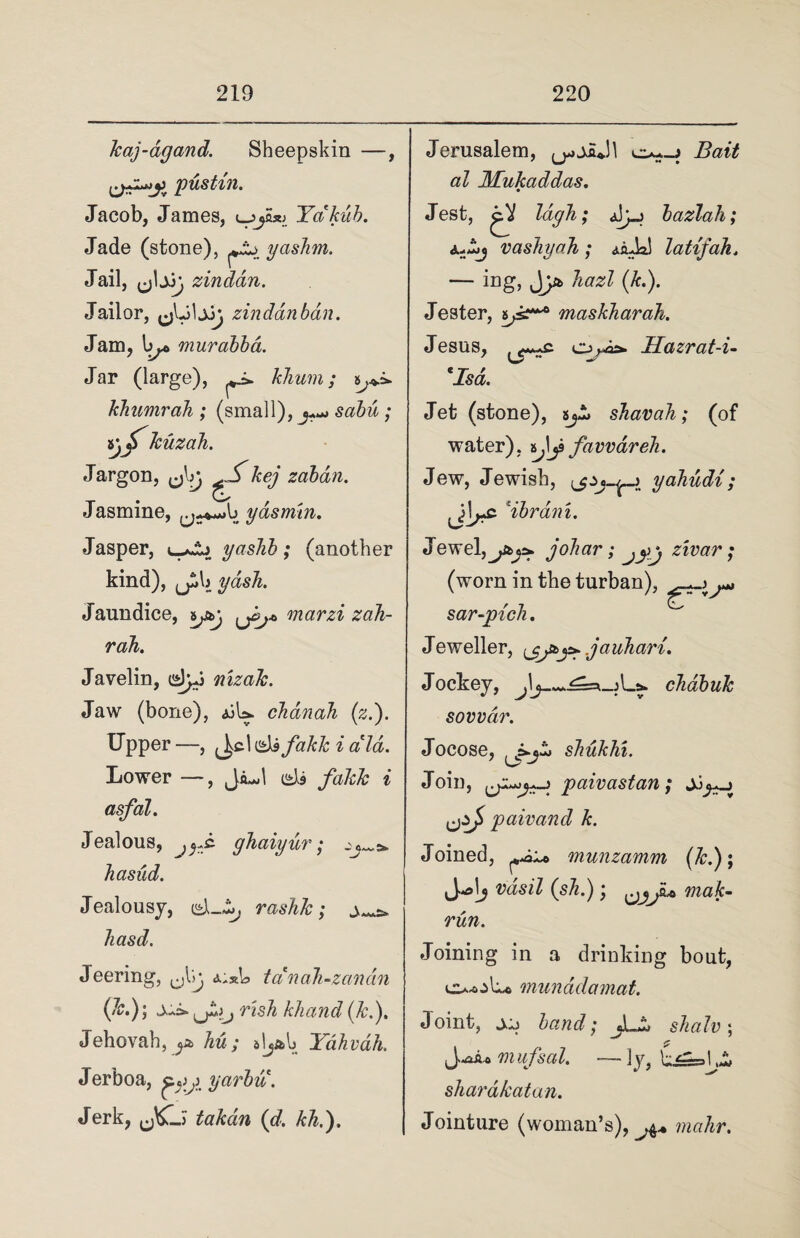 219
kaj-ágand. Sheepskin —,
پوستین pústín.
Jacob, James, یعقوب Ya'kúb.
Jade (stone), یشم yashm.
Jail, زندان zindán.
Jailor, زندانبان zindánbán.
Jam, مربا murabbá.
Jar (large), خم khum; خمره
khumrah; (small), سبو sabú;
کوزه kúzah.
Jargon, کج زبان kej zabán.
Jasmine, یاسمین yásmín.
Jasper, یشب yashb; (another
kind), یاش yásh.
Jaundice, مرض زهره marzi zah-
rah.
Javelin, نیزك nízak.
Jaw (bone), چانه chánah (z.).
Upper —, فك اعلی fakk i a'lá.
Lower —, فك اسفل fakk i
asfal.
Jealous, غیور ghaiyúr; حسود
hasúd.
Jealousy, رشك rashk; حسد
hasd.
Jeering, طعنه زنان ta'nah-zanán
(k.); ریش خند rísh khand (k.).
Jehovah, هو hú; یاهواه Yáhváh.
Jerboa, یربوع yarbú'.
Jerk, تکان takán (d. kh.).
220
Jerusalem, بیت المقدس Bait
al Mukaddas.
Jest, لاغ lágh; بذله bazlah;
وشیه vashyah; لطیفه latífah.
— ing, هزل hazl (k.).
Jester, مسخره maskharah.
Jesus, حضرت عیسی Hazrat-i-
'Isá.
Jet (stone), شوه shavah; (of
water), فواره favváreh.
Jew, Jewish, یهودی yahúdí;
عبرانی 'ibrání.
Jewel, جوهر johar; زیور zívar;
(worn in the turban), سرپیچ
sar-pích.
Jeweller, جوهری jauharí.
Jockey, چابك سوار chábuk
sovvár.
Jocose, شوخی shúkhí.
Join, پیوستن paivastan; پیوند
کردن paivand k.
Joined, منضم munzamm (k.);
واصل vásil (sh.); مقرون mak-
rún.
Joining in a drinking bout,
منادمت munádamat.
Joint, بند band; شلو shalv;
مفصل mufsal. — ly, شراکتا
sharákatan.
Jointure (woman's), مهر mahr.